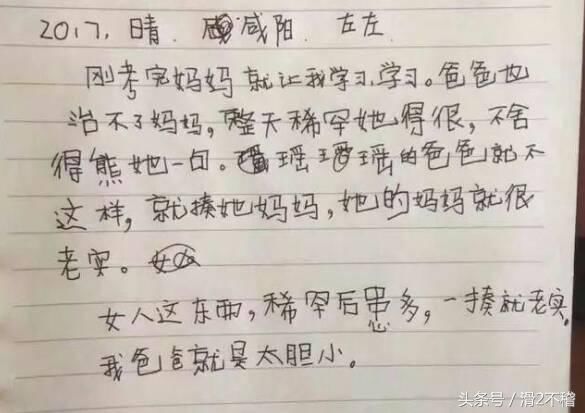 2017, 晴. 咸阳. 左左
刚考完妈妈就让我学习,学习。爸爸也
治不了妈妈,整天稀罕她得很,不舍
得熊她一句。瑶瑶的爸爸就不
这样,就揍她妈妈,她的妈妈就很
老实。
女人这东西,稀罕后患多,一揍就老实。
我爸爸就是太胆小。
头条号/滑2不稽